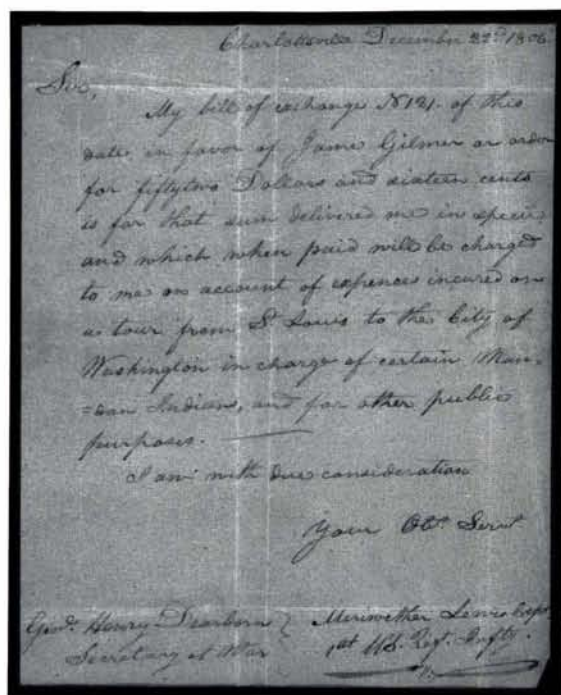 Charlottesville December 22d 1806.
Sir,
My bill of exchange No 121. of this
date in favor of James Gilmer or order
for fiftytwo Dollars and sixteen cents
is for that sum delivered me in specie
and which when paid will be charged
to me on account of expences incured on
a tour from St Louis to the City of
Washington in charge of certain Man-
=dan Indians, and for other public
purposes.
I am with due consideration
Your Obt. Servt
Genl. Henry Dearborn } Meriwether Lewis Capt.
Secretary at War 1st US. Regt. Infty.